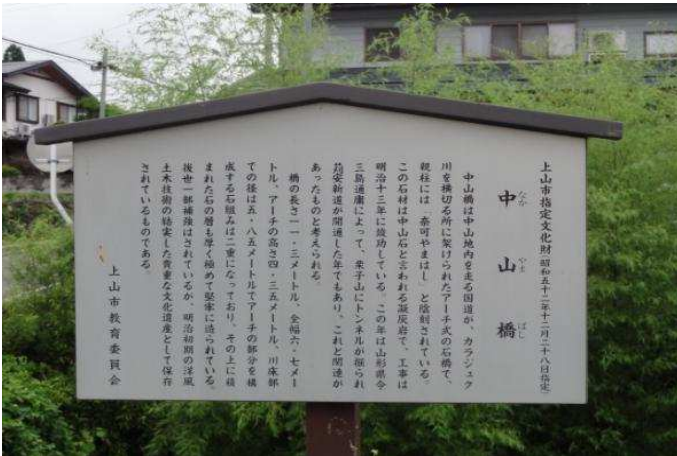 上山市指定文化財(昭和五十二年十二月二十八日指定)
中山橋
なか やま ばし
中山橋は中山地内を走る国道が、カラジュク
川を横切る所に架けられたアーチ式の石橋で、
親柱には「奈可やまはし」と陰刻されている。
この石材は中山石と言われる凝灰岩で、工事は
明治十三年に竣功している。この年は山形県令
三島通庸によって、栗子山にトンネルが掘られ
苅安新道が開通した年でもあり、これと関連が
あったものと考えられる。
橋の長さ一一・三メートル、全幅六・七メー
トル、アーチの高さ四・三五メートル、川床部
での径は五・八五メートルでアーチの部分を構
成する石組みは二重になっており、その上に積
まれた石の層も厚く極めて堅牢に造られている。
後世一部補強はされているが、明治初期の洋風
土木技術の結実した貴重な文化遺産として保存
されているものである。
上山市教育委員会